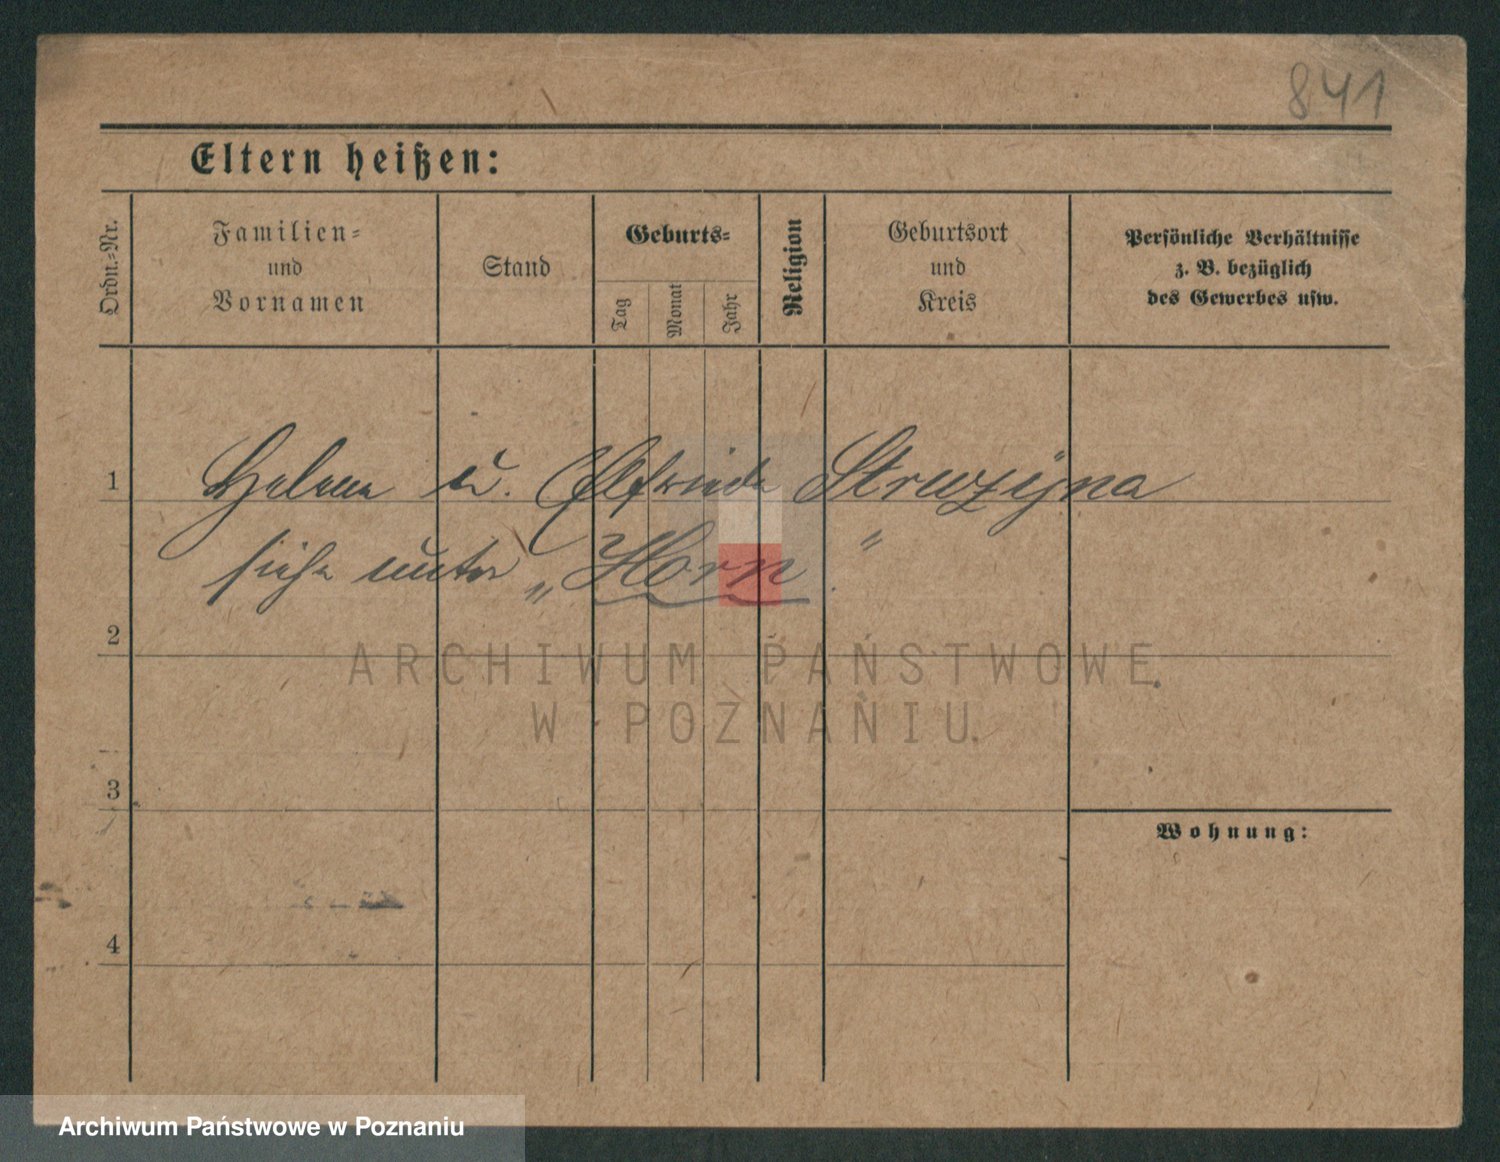 841
Eltern heißen:
Ordn.-Nr.
Familien-
und
Vornamen
Stand
Geburts-
Tag
Monat
Jahr
Religion
Geburtsort
und
Kreis
Persönliche Verhältnisse
z. B. bezüglich
des Gewerbes usw.
1
Helene u. Elfriede
siehe unter „Horn."
2
ARCHIWUM PAŃSTWOWE
W POZNANIU
3
Wohnung:
4
Archiwum Państwowe w Poznaniu